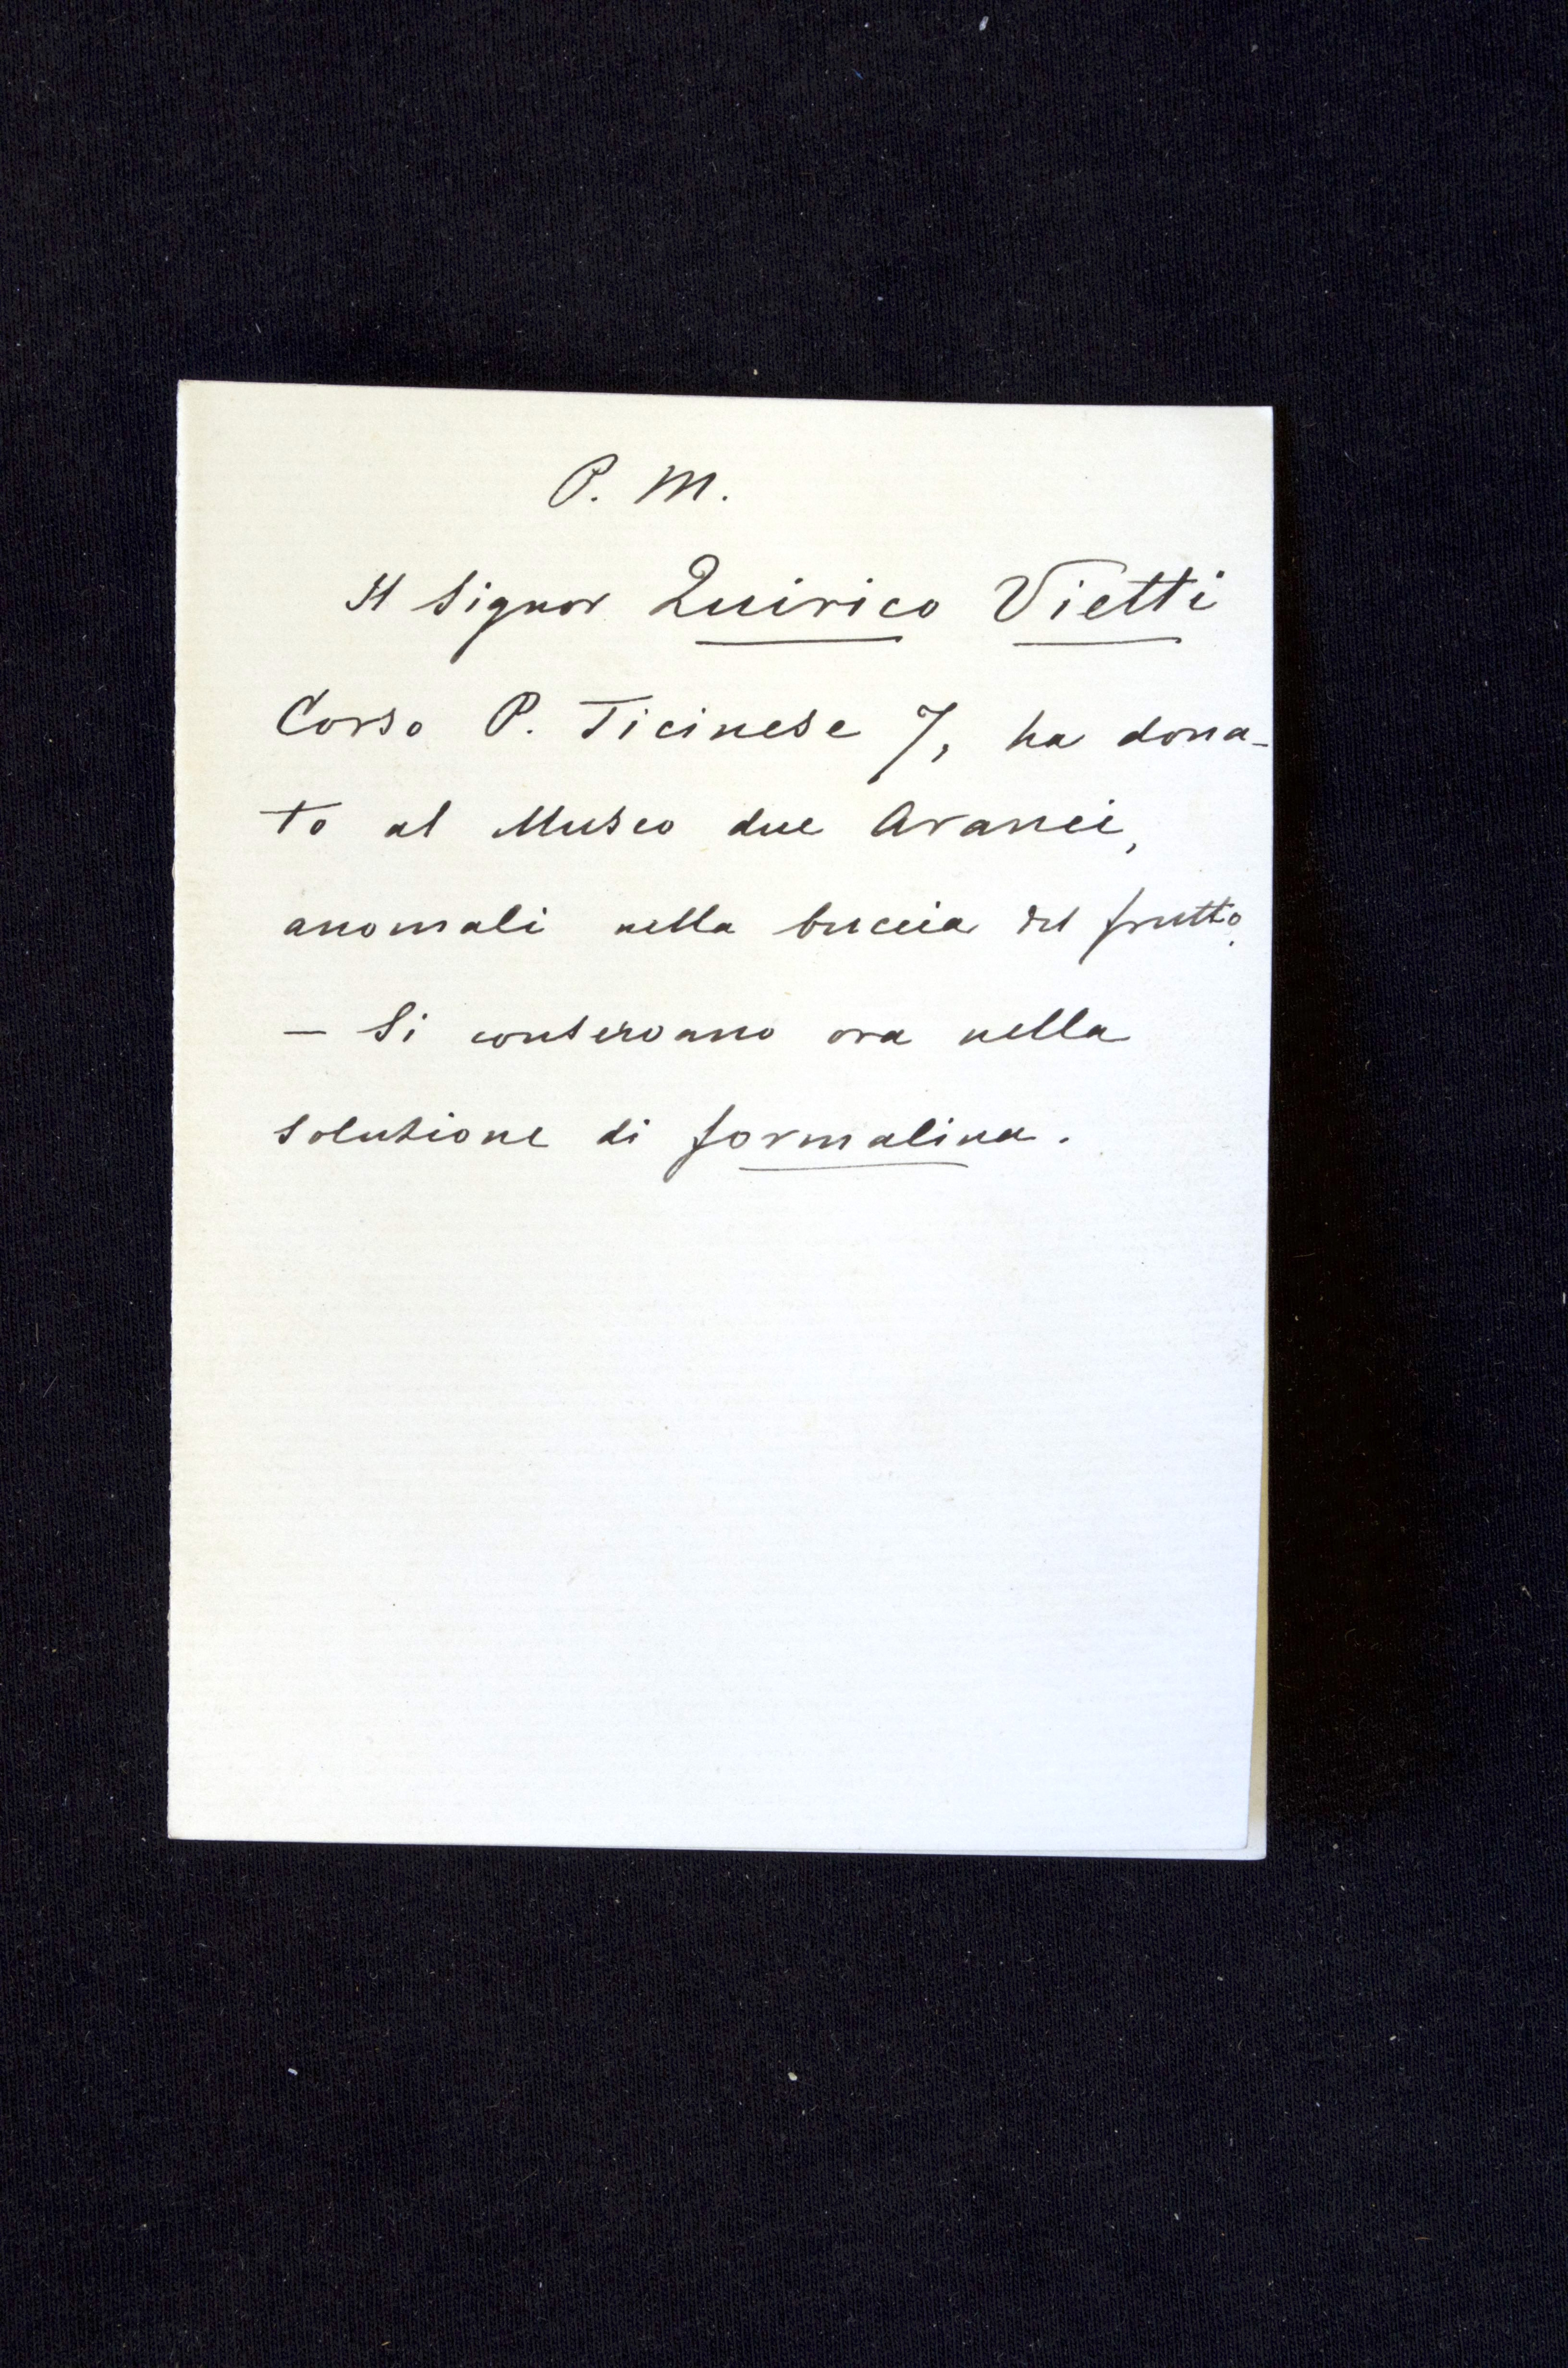 P. M.
Il Signor Quirico Vietti
Corso P. Ticinese 7, ha dona-
to al Museo due Aranci,
anomali nella buccia del frutto.
— Si conservano ora nella
soluzione di formalina.